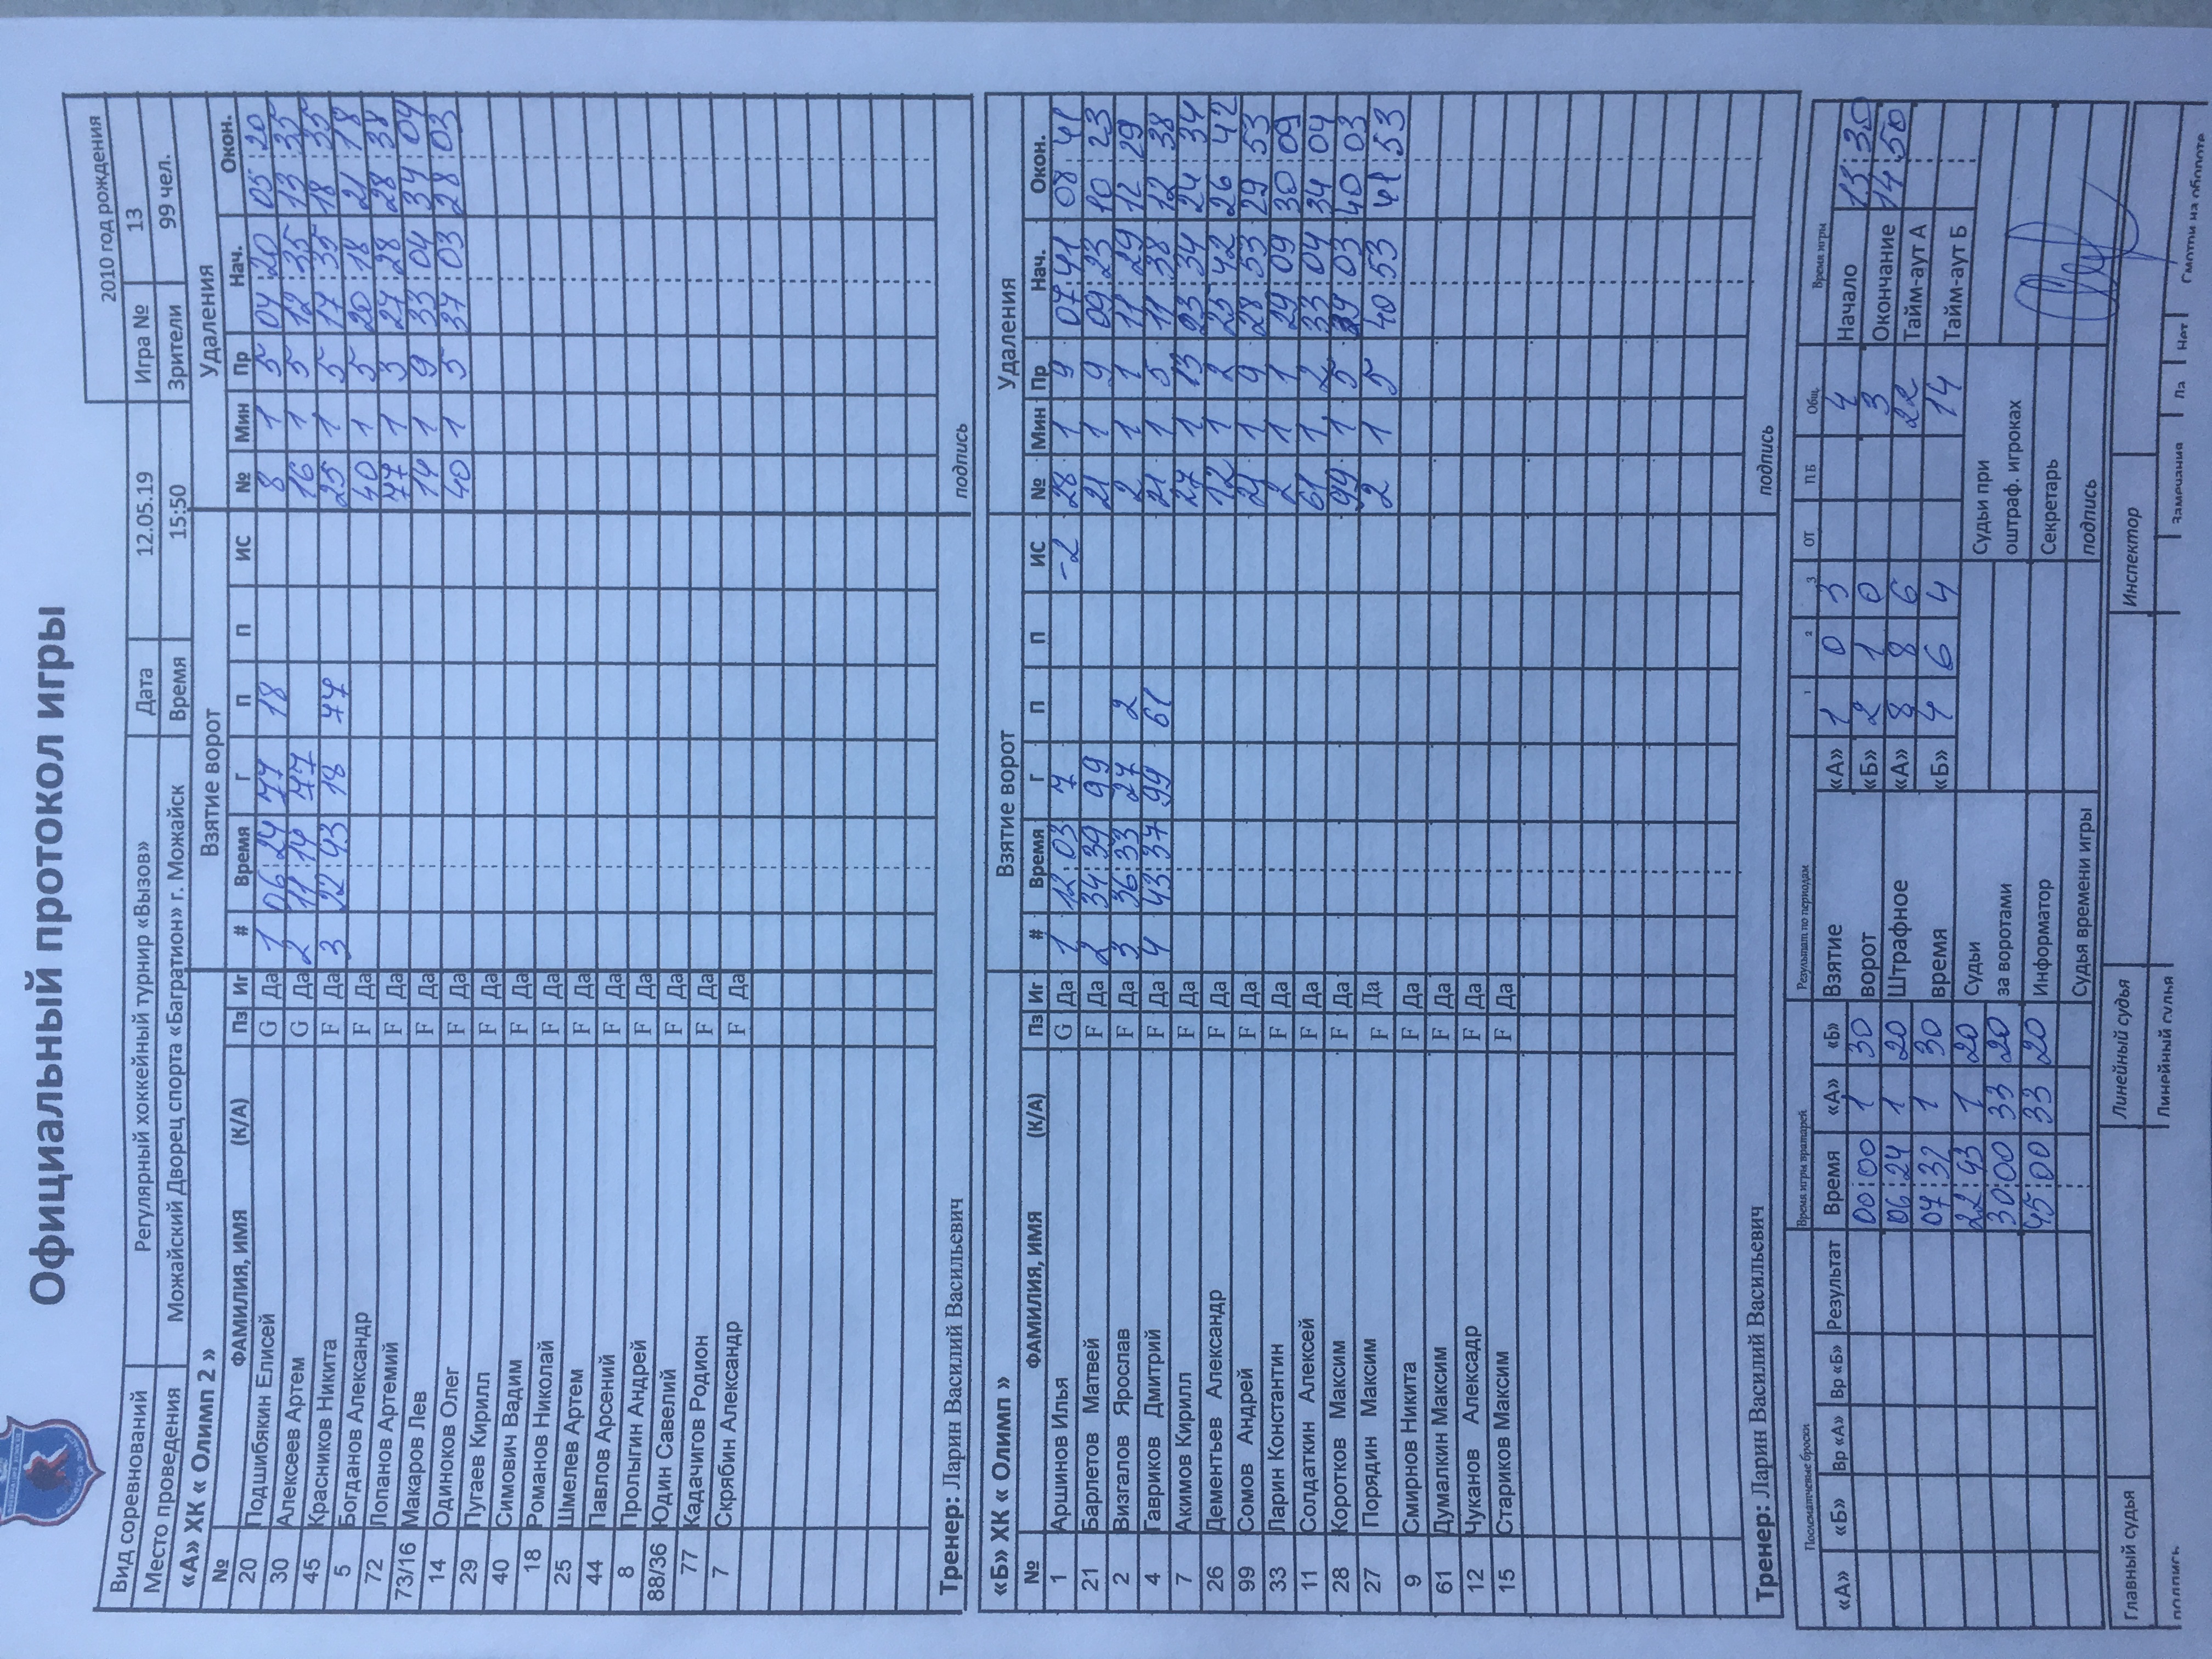 Официальный протокол игры
2010 год рождения
Вид соревнований Регулярный хоккейный турнир «Вызов» Дата 12.05.19 Игра № 13
Место проведения Можайский Дворец спорта «Багратион» г. Можайск Время 15:50 Зрители 99 чел.
«А» ХК « Олимп 2 » Взятие ворот Удаления
№ ФАМИЛИЯ, ИМЯ (К/А) Пз Иг # Время Г П П ИС № Мин Пр Нач. Окон.
20 Подшибякин Елисей G Да 1 06:24 77 18 8 1 5 04:20 05:20
30 Алексеев Артем G Да 2 11:14 77 16 1 5 12:35 13:35
45 Красников Никита F Да 3 22:43 18 77 25 1 5 17:35 18:35
5 Богданов Александр F Да 40 1 5 20:18 21:18
72 Лопанов Артемий F Да 77 1 3 27:28 28:38
73/16 Макаров Лев F Да 14 1 9 33:04 34:04
14 Одиноков Олег F Да 40 1 5 37:03 28:03
29 Пугаев Кирилл F Да
40 Симович Вадим F Да
18 Романов Николай F Да
25 Шмелев Артем F Да
44 Павлов Арсений F Да
8 Пролыгин Андрей F Да
88/36 Юдин Савелий F Да
77 Кадачигов Родион F Да
7 Скрябин Александр F Да
Тренер: Ларин Василий Васильевич подпись
«Б» ХК « Олимп » Взятие ворот Удаления
№ ФАМИЛИЯ, ИМЯ (К/А) Пз Иг # Время Г П П ИС № Мин Пр Нач. Окон.
1 Аршинов Илья G Да 1 12:03 7 -2 28 1 9 07:41 08:41
21 Барлетов Матвей F Да 2 34:39 99 21 1 9 09:23 10:23
2 Визгалов Ярослав F Да 3 36:33 27 2 2 1 1 11:29 12:29
4 Гавриков Дмитрий F Да 4 43:37 99 61 21 1 5 11:38 12:38
7 Акимов Кирилл F Да 27 1 13 23:34 24:34
26 Дементьев Александр F Да 12 1 2 25:42 26:42
99 Сомов Андрей F Да 21 1 9 28:53 29:53
33 Ларин Константин F Да 2 1 1 29:09 30:09
11 Солдаткин Алексей F Да 61 1 2 33:04 34:04
28 Коротков Максим F Да 99 1 5 39:03 40:03
27 Порядин Максим F Да 2 1 5 40:53 41:53
9 Смирнов Никита F Да
61 Думалкин Максим F Да
12 Чуканов Алексадр F Да
15 Стариков Максим F Да
Тренер: Ларин Василий Васильевич подпись
Послематчевые броски Время игры вратарей Результат по периодам Время игры
«А» «Б» Вр «А» Вр «Б» Результат Время «А» «Б» Взятие ворот 1 2 3 ОТ ПБ Общ.
00:00 1 30 «А» 1 0 3 4 Начало 13:30
06:24 1 20 «Б» 2 1 0 3 Окончание 14:50
07:32 1 30 Штрафное время «А» 8 8 6 22 Тайм-аут А
22:43 1 20 «Б» 4 6 4 14 Тайм-аут Б
30:00 33 20 Судьи за воротами Судьи при оштраф. игроках
45:00 33 20 Информатор Секретарь
Судья времени игры подпись
Главный судья Линейный судья Инспектор
подпись Линейный судья Замечания Да Нет Смотри на обороте